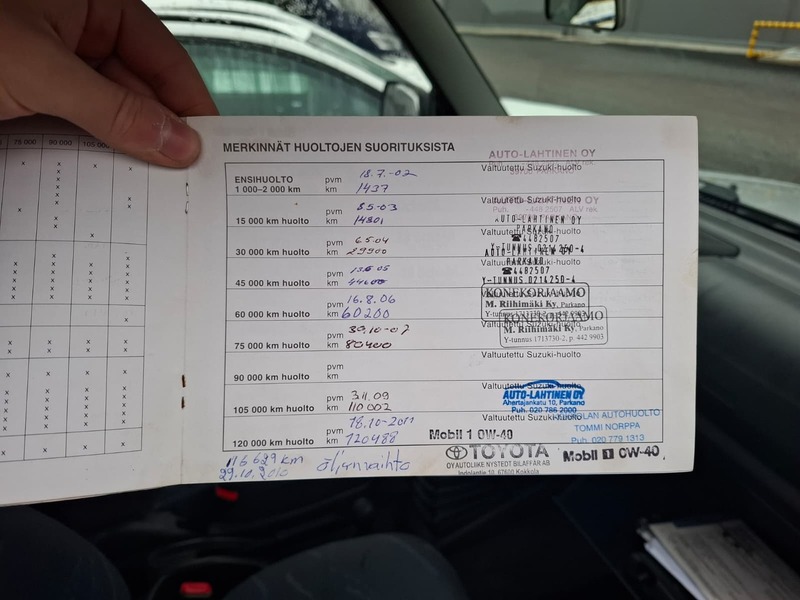 75 000 90 000 105 000
MERKINNÄT HUOLTOJEN SUORITUKSISTA
AUTO-LAHTINEN OY
ENSIHUOLTO pvm 18.7.-02 Valtuutettu Suzuki-huolto
1 000–2 000 km km 1437
pvm 8.5-03 Valtuutettu Suzuki-huolto
15 000 km huolto km 14801
AUTO-LAHTINEN OY
PARKANO
☎4482507
Y-TUNNUS 0214250-4
pvm 6.5.04 Valtuutettu Suzuki-huolto
30 000 km huolto km 29900
AUTO-LAHTINEN OY
PARKANO
☎4482507
Y-TUNNUS 0214250-4
pvm Valtuutettu Suzuki-huolto
45 000 km huolto km 44600
KONEKORJAAMO
M. Riihimäki Ky, Parkano
Y-tunnus 1713730-2, p. 442 9903
pvm 16.8.06
60 000 km huolto km 60200
KONEKORJAAMO
M. Riihimäki Ky, Parkano
Y-tunnus 1713730-2, p. 442 9903
pvm 30.10-07
75 000 km huolto km 80400
pvm Valtuutettu Suzuki-huolto
90 000 km huolto km
pvm 3.11.09 Valtuutettu Suzuki-huolto
105 000 km huolto km 110002
AUTO-LAHTINEN OY
Ahertajankatu 10, Parkano
Puh. 020 786 2000
pvm 18.10-2011 Valtuutettu Suzuki-huolto
120 000 km huolto km 120488
Mobil 1 0W-40
AUTOHUOLTO
TOMMI NORPPA
Puh. 020 779 1313
116 629 km öljynvaihto
29.10.2010
TOYOTA
OY AUTOLIIKE NYSTEDT BILAFFÄR AB
Indolantie 10, 67600 Kokkola
Mobil 1 0W-40